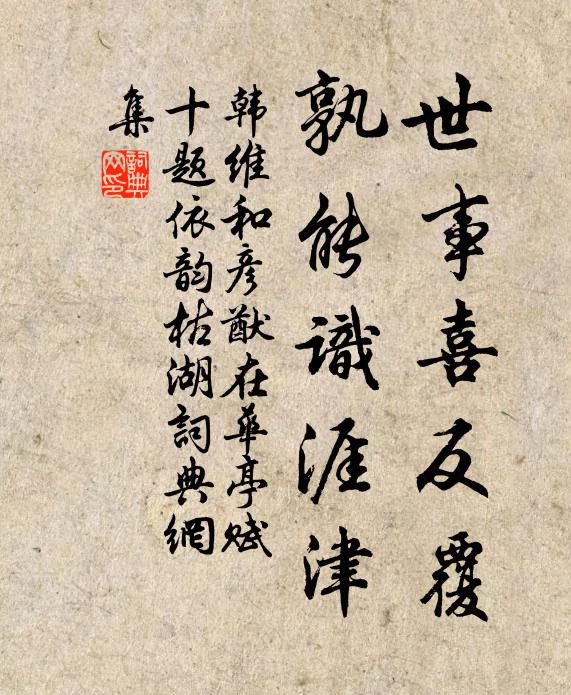 世事喜反覆
孰能識涯津
韩維和彦猷在華亭赋
十题依韵枯湖詞典網
集
詞典網印